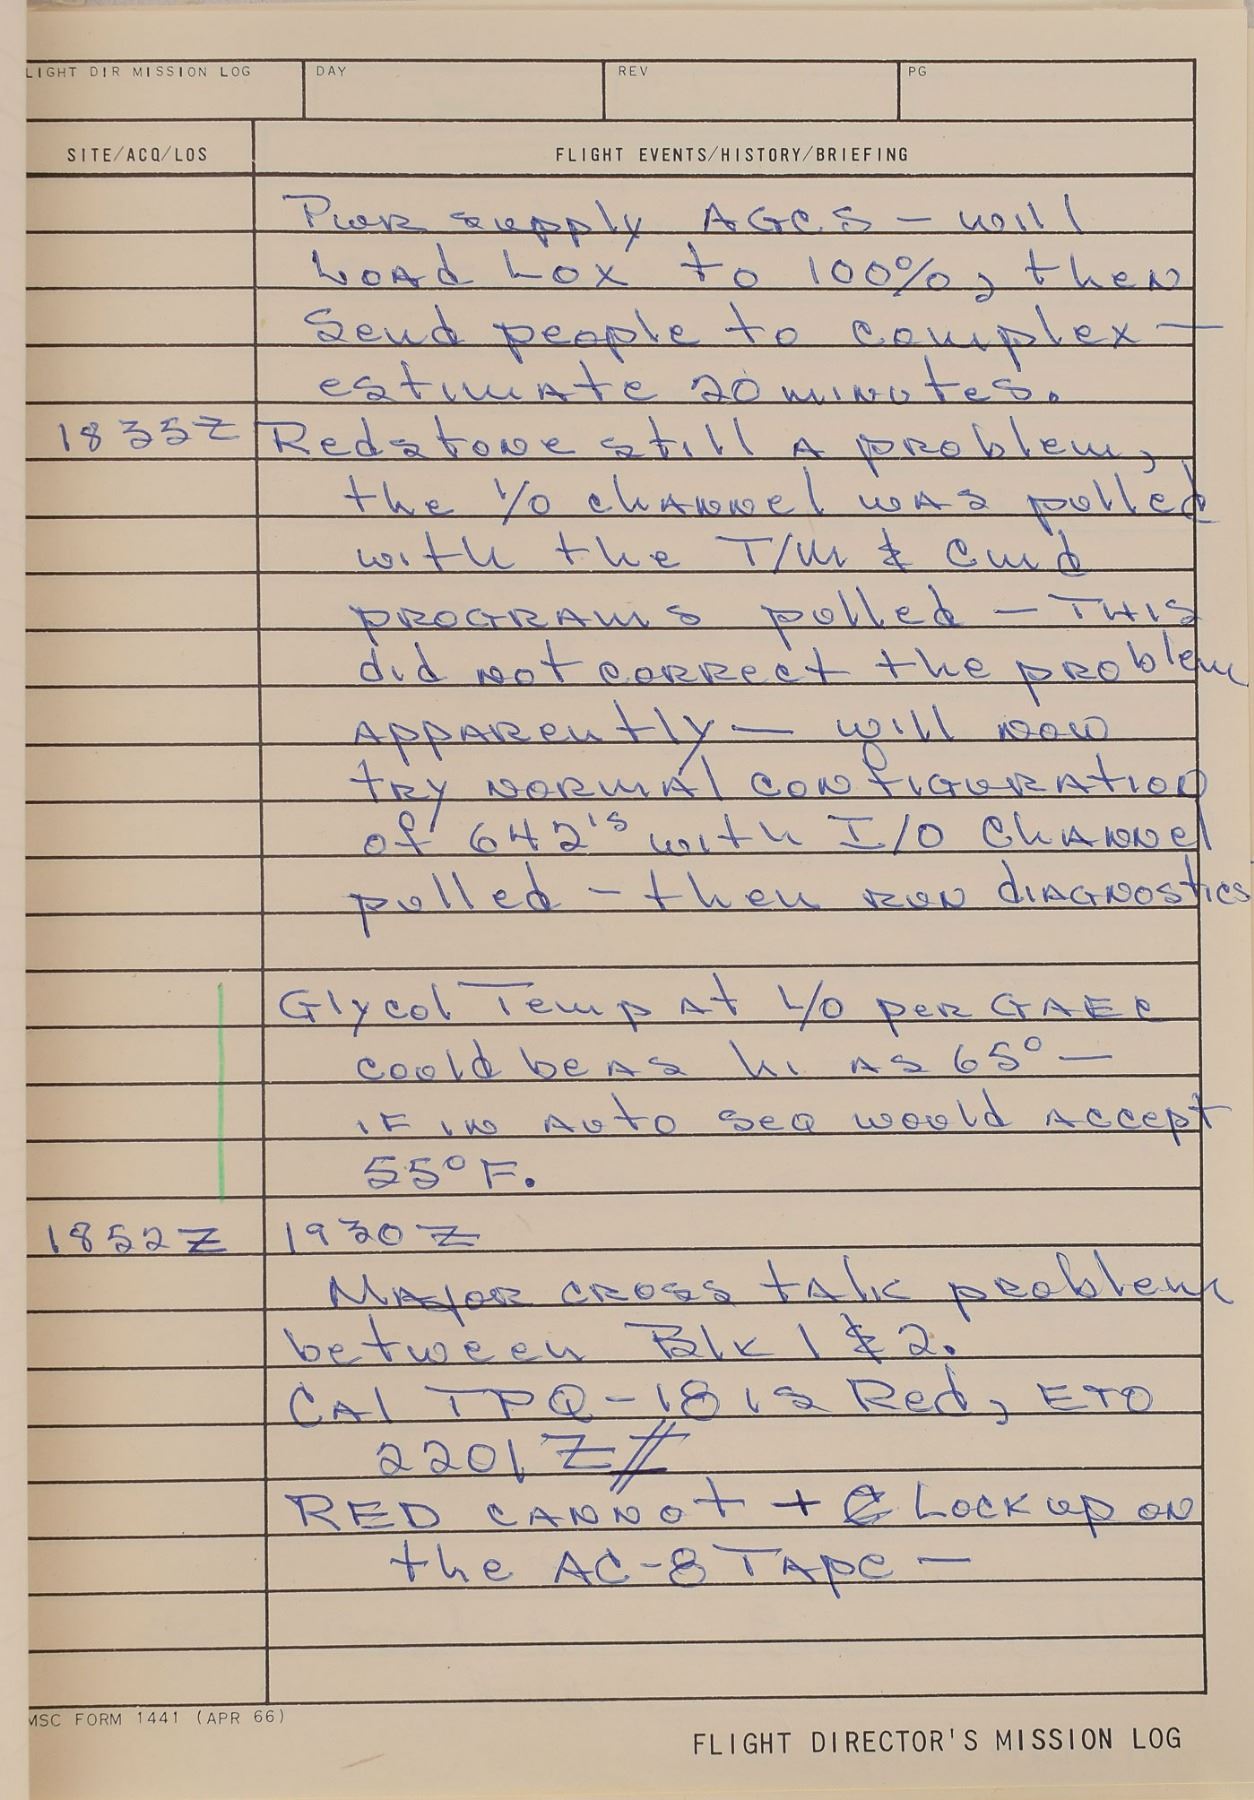 LIGHT DIR MISSION LOG DAY REV PG
SITE/ACQ/LOS FLIGHT EVENTS/HISTORY/BRIEFING
Pwr supply AGCS - will
Load Lox to 100%, then
Send people to complex -
estimate 20 minutes.
1835Z Redstone still a problem,
the I/O channel was pulled
with the T/M & Cmd
programs pulled - THIS
did not correct the problem
apparently - will now
try normal configuration
of 642's with I/O Channel
pulled - then run diagnostics
Glycol Temp at L/O per GAEC
could be as hi as 65° -
IF in Auto Seq would accept
55°F.
1852Z 1930Z
Major cross talk problem
between Blk 1 & 2.
Cal TPQ-18 is Red, ETO
2201Z //
RED cannot + C Lock up on
the AC-8 Tape -
MSC FORM 1441 (APR 66)
FLIGHT DIRECTOR'S MISSION LOG